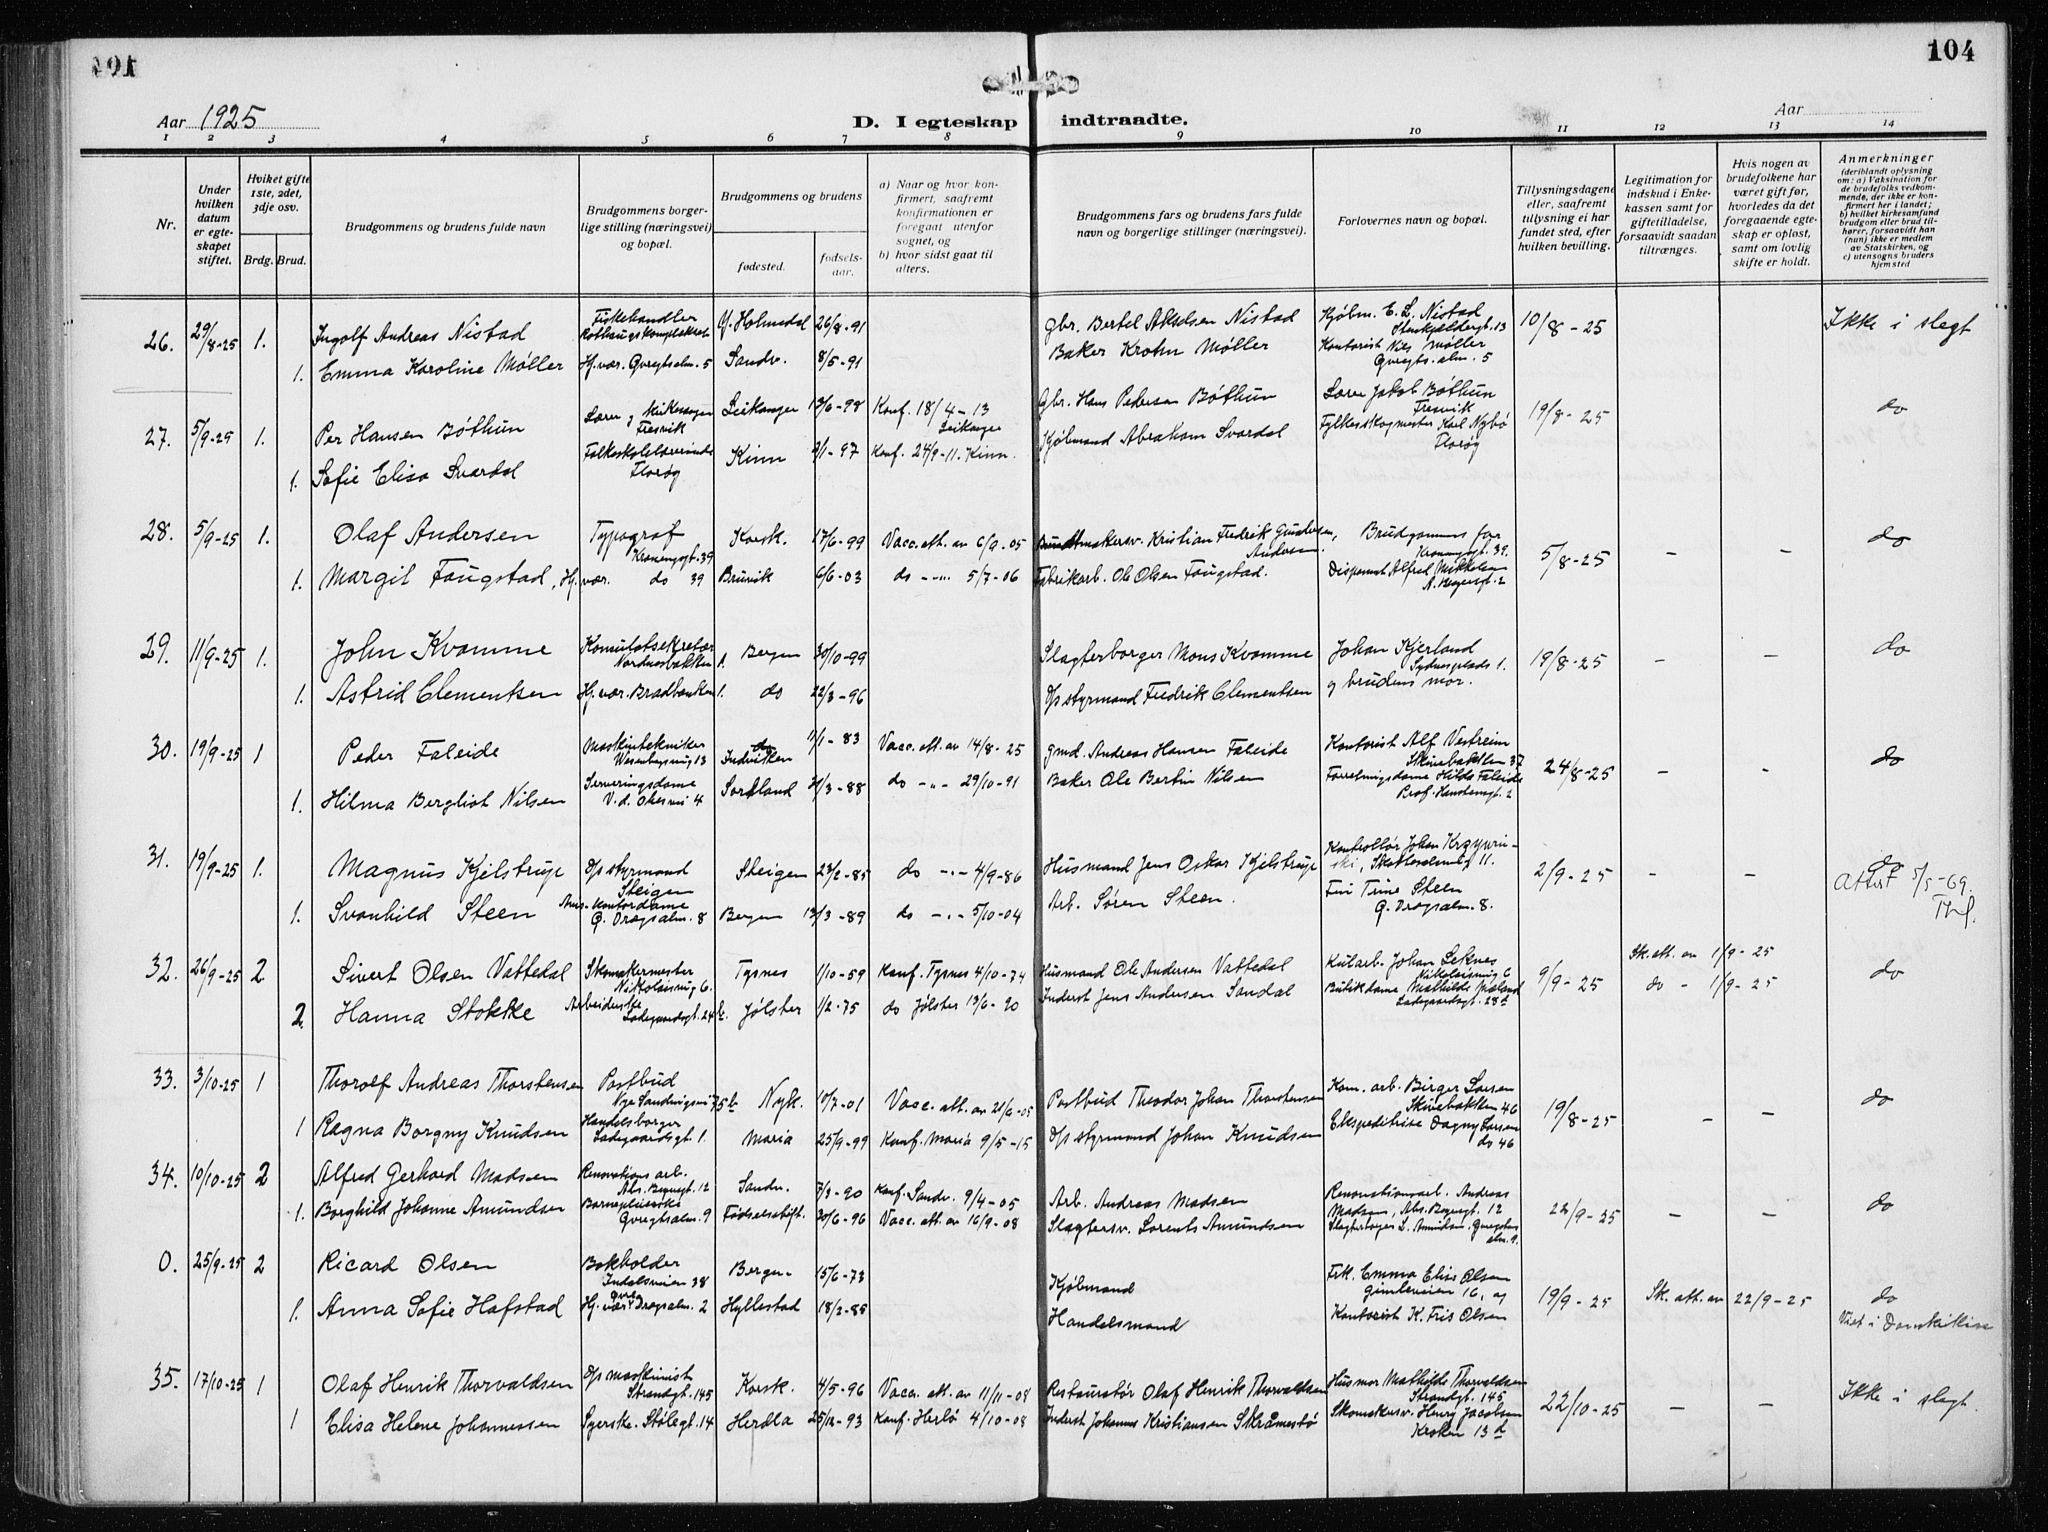 104
Aar 1925
D. I egteskap indtraadte.
Aar
1 2 3 4 5 6 7 8 9 10 11 12 13 14
Nr.
Under hvilken datum er egteskapet stiftet.
Hviket gifte 1ste, 2det, 3dje osv.
Brdg. Brud.
Brudgommens og brudens fulde navn
Brudgommens borgerlige stilling (næringsvei) og bopæl.
Brudgommens og brudens
fødested.
fødselsaar.
a) Naar og hvor konfirmert, saafremt konfirmationen er foregaat utenfor sognet, og
b) hvor sidst gaat til alters.
Brudgommens fars og brudens fars fulde navn og borgerlige stillinger (næringsvei).
Forlovernes navn og bopæl.
Tillysningsdagene eller, saafremt tillysning ei har fundet sted, efter hvilken bevilling.
Legitimation for indskud i Enkekassen samt for giftetilladelse, forsaavidt saadan tiltrænges.
Hvis nogen av brudefolkene har været gift før, hvorledes da det foregaaende egteskap er opløst, samt om lovlig skifte er holdt.
Anmerkninger (deriblandt oplysning om: a) Vaksination for de brudefolks vedkommende, der ikke er konfirmert her i landet; b) hvilket kirkesamfund brudgom eller brud tilhører, forsaavidt han (hun) ikke er medlem av Statskirken, og c) utensogns bruders hjemsted
26. 29/8-25 1. Ingolf Andreas Nistad Fiskehandler Y. Holmedal 26/8-91 Gbr. Bertel Akselsen Nistad Kjøbm. E. L. Nistad 10/8-25 Ikke i slegt
1. Emma Karoline Møller Hj. vær. Øvregtsalm. 5 Sandv. 8/5-91 Baker Krohn Møller Kontorist Nils Møller Øvregts. alm. 5
27. 5/9-25 1. Per Hansen Bøthun Lærer og kirkesanger Fresvik Leikanger 13/6-98 Konf. 18/4-13 Leikanger Gbr. Hans Pedersen Bøthun Lærer Jakob Bøthun Fresvik 19/8-25 do
1. Sofie Elisa Svardal Folkeskolelærerinde Florøy Kinn 2/1-97 Konf. 24/9-11. Kinn. Kjøbmand Abraham Svardal Fylkesskogmester Karl Nybø Florøy
28. 5/9-25 1. Olaf Andersen Typograf Kroneng.gt. 39 Korsk. 17/6-99 Vacc. att. av 6/9-05 Kristian Fredrik Gundersen Andersen. Brudgommens far 39. 5/8-25 - - do
1. Margit Fougstad, Hj. vær. do 39 Bruvik 6/6-03 do -"- 5/7-06 Fabrikarb. Ole Olsen Fougstad. Disponent Alfred Mikkelsen
29. 11/9-25 1. John Kvamme Konsulatsekretær Nordnesbakken 1. Bergen 30/10-99 Slagterborger Mons Kvamme Johan Kjerland Sydnesplads 1. 19/8-25 - - do
1. Astrid Clementsen Hj. vær. Bradbenken 1. do 22/3-96 D/s styrmand Fredrik Clementsen og brudens mor.
30. 19/9-25 1 Peder Faleide Maskintekniker Indviken 11/1-83 Vacc. att. av 14/8-25 Gmd. Andreas Hansen Faleide Kontorist Alf Vestreim Skivebakken 37 24/8-25 - - do
1. Hilma Bergliot Nilsen Serveringsdame Sortland 21/3-88 do -"- 29/10-91 Baker Ole Bertin Nilsen Forretningsdame Hilda Faleide Prof. Hansteensgt. 2
31. 19/9-25 1. Magnus Kjelstrup D/s styrmand Steigen Steigen 23/2-85 do -"- 4/9-86 Husmand Jens Oskar Kjelstrup Kontrollør Johan Krzywinski, 11. 2/9-25 - - do Attest 5/5-69.
1. Svanhild Steen Ass. kontordame Ø. Dragsalm. 8 Bergen 13/3-89 do -"- 5/10-04 Arb. Søren Steen. Frk. Trine Steen Ø. Dragsalm. 8.
32. 26/9-25 2 Sivert Olsen Vattedal Skomakermester Nikolaismug 6. Tysnes 1/10-59 Konf. Tysnes 4/10-74 Husmand Ole Andersen Vattedal Kularb. Johan Seknes Nikolaismug 6 9/9-25 Sk. att. av 1/9-25 do
2. Hanna Stokke Arbeiderske Ladegaardsgt. 24 b. Jølster 1/2-75 do Jølster 13/6-90 Inderst Jens Andersen Sandal Butikdame Mathilde Mæland Ladegaardsgt. 28 do - 1/9-25
33. 3/10-25 1 Thorolf Andreas Thorstensen Postbud Nye Sandviksvei 75 b Nyk. 10/7-01 Vacc. att. av 21/6-05 Postbud Theodor Johan Thorstensen Kom. arb. Birger Larsen Skivebakken 46 19/8-25 - - do
1 Ragna Borgny Knudsen Handelsborger Ladegaardsgt. 1. Maria 25/9-99 Konf. Maria 9/5-15 D/s styrmand Johan Knudsen Ekspeditrise Dagny Larsen do 46
34. 10/10-25 2 Alfred Gerhard Madsen Renovations arb. 12 Sandv. 7/3-90 Konf. Sandv. 9/4-05 Arb. Andreas Madsen Renovationsarb. Andreas Madsen, 12 22/9-25 - - do
1. Borghild Johanne Amundsen Barnepleierske Øvregtsalm. 9 Fødselsstift. 30/6-96 Vacc. att. av 16/9-08 Slagtersv. Lorents Amundsen Slagterborger L. Amundsen Øvregtens alm. 9.
0. 25/9-25 2 Ricard Olsen Bokholder 38 Bergen 15/6-73 Kjøbmand Frk. Emma Elise Olsen Gimleveien 16, og 19/9-25 Sk. att. av 22/9-25 do
1. Anna Sofie Hafstad Hj. vær. Dragsalm. 2 Hyllestad 18/2-85 Handelsmand Kontorist K. Friis Olsen Viet i Domkirken
35. 17/10-25 1 Olaf Henrik Thorvaldsen D/s maskinist Strandgt. 145 Korsk. 4/5-96 Vacc. att. av 11/11-08 Restauratør Olaf Henrik Thorvaldsen Husmor Mathilde Thorvaldsen Strandgt. 145 22/10-25 - - Ikke i slegt.
1 Elisa Helene Johannessen Syerske. Stølegt. 14 Herdla 25/12-93 Konf. Herlø 4/10-08 Inderst Johannes Kristiansen Skråmestø Skomakersv. Henry Jacobsen Kroken 13 d